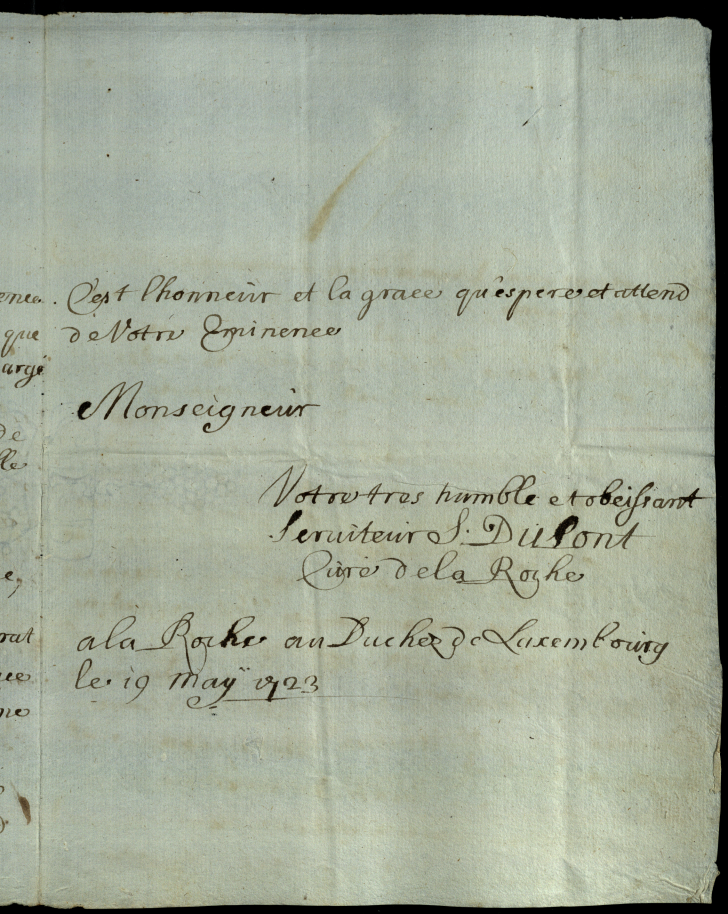 C'est lhonneur et la grace qu'espere et attend
de Votre Eminence
Monseigneur
Votre tres humble et obeissant
Serviteur S. DuPont
Curé de la Roche
a la Roche au Duché de Luxembourg
le 19 maÿ 1723
que
argé
de
lle
rat